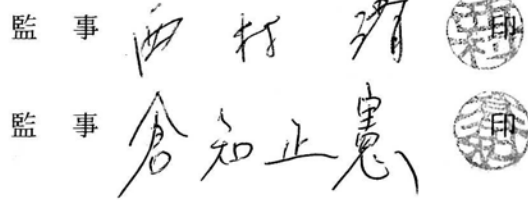 監事 西村 清 印
監事 倉知正憲 印